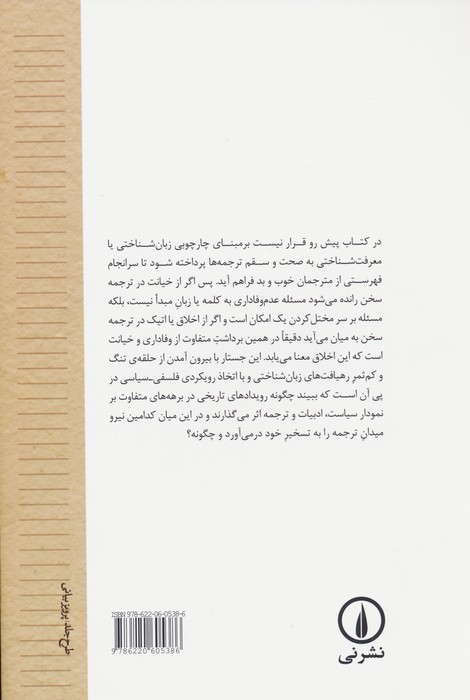 در کتاب پیش رو قرار نیست برمبنای چارچوبی زبان‌شناختی یا
معرفت‌شناختی به صحت و سقم ترجمه‌ها پرداخته شود تا سرانجام
فهرستی از مترجمان خوب و بد فراهم آید. پس اگر از خیانت در ترجمه
سخن رانده می‌شود مسئله عدم‌وفاداری به کلمه یا زبانِ مبدأ نیست، بلکه
مسئله بر سر مختل‌کردن یک امکان است و اگر از اخلاق یا اتیک در ترجمه
سخن به میان می‌آید دقیقاً در همین برداشتِ متفاوت از وفاداری و خیانت
است که این اخلاق معنا می‌یابد. این جستار با بیرون آمدن از حلقه‌ی تنگ
و کم‌ثمرِ رهیافت‌های زبان‌شناختی و با اتخاذ رویکردی فلسفی-سیاسی در
پی آن است که ببیند چگونه رویدادهای تاریخی در برهه‌های متفاوت بر
نمودار سیاست، ادبیات و ترجمه اثر می‌گذارند و در این میان کدامین نیرو
میدانِ ترجمه را به تسخیرِ خود درمی‌آورد و چگونه؟
طرح جلد: پرویز بیانی
ISBN 978-622-06-0538-6
9786220605386
نشرنی